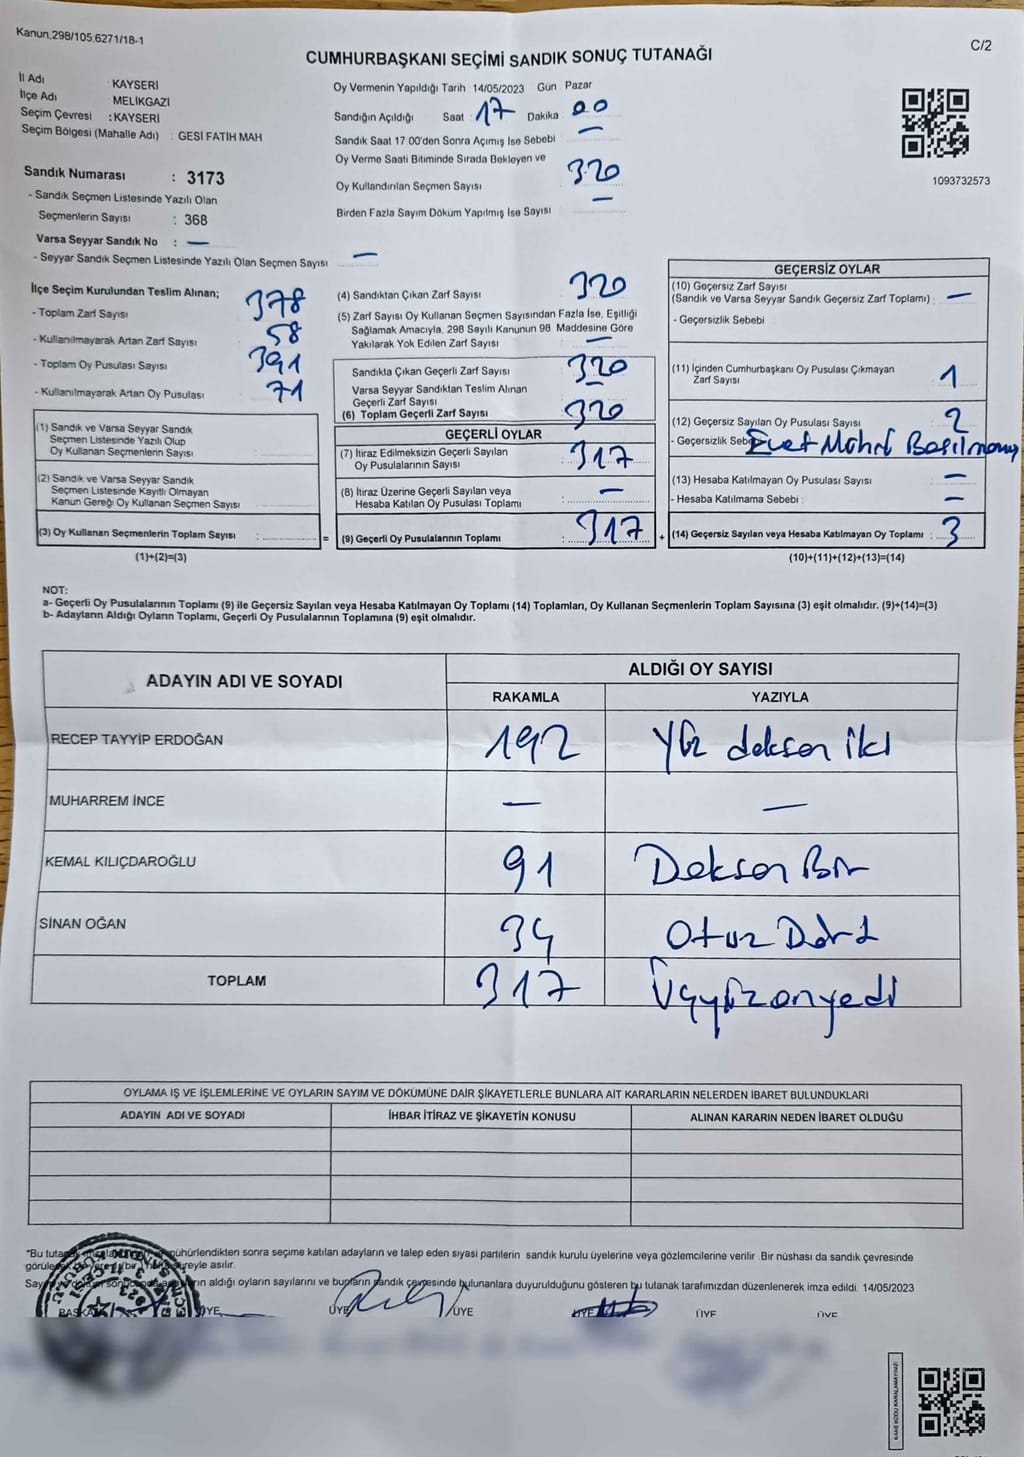 Kanun,298/105,6271/18-1
C/2
CUMHURBAŞKANI SEÇİMİ SANDIK SONUÇ TUTANAĞI
İl Adı : KAYSERİ
İlçe Adı : MELİKGAZİ
Seçim Çevresi : KAYSERİ
Seçim Bölgesi (Mahalle Adı) : GESİ FATİH MAH
Sandık Numarası : 3173
- Sandık Seçmen Listesinde Yazılı Olan
Seçmenlerin Sayısı : 368
Varsa Seyyar Sandık No : —
- Seyyar Sandık Seçmen Listesinde Yazılı Olan Seçmen Sayısı —
Oy Vermenin Yapıldığı Tarih 14/05/2023 Gün Pazar
Sandığın Açıldığı Saat 17 Dakika 00
Sandık Saat 17.00'den Sonra Açımış İse Sebebi —
Oy Verme Saati Bitiminde Sırada Bekleyen ve
Oy Kullandırılan Seçmen Sayısı 320
Birden Fazla Sayım Döküm Yapılmış İse Sayısı —
1093732573
İlçe Seçim Kurulundan Teslim Alınan;
- Toplam Zarf Sayısı 378
- Kullanılmayarak Artan Zarf Sayısı 58
- Toplam Oy Pusulası Sayısı 391
- Kullanılmayarak Artan Oy Pusulası 71
(1) Sandık ve Varsa Seyyar Sandık
Seçmen Listesinde Yazılı Olup
Oy Kullanan Seçmenlerin Sayısı
(2) Sandık ve Varsa Seyyar Sandık
Seçmen Listesinde Kayıtlı Olmayan
Kanun Gereği Oy Kullanan Seçmen Sayısı
(3) Oy Kullanan Seçmenlerin Toplam Sayısı : =
(1)+(2)=(3)
(4) Sandıktan Çıkan Zarf Sayısı 320
(5) Zarf Sayısı Oy Kullanan Seçmen Sayısından Fazla İse, Eşitliği
Sağlamak Amacıyla, 298 Sayılı Kanunun 98. Maddesine Göre
Yakılarak Yok Edilen Zarf Sayısı —
Sandıkta Çıkan Geçerli Zarf Sayısı 320
Varsa Seyyar Sandıktan Teslim Alınan
Geçerli Zarf Sayısı —
(6) Toplam Geçerli Zarf Sayısı 320
GEÇERLİ OYLAR
(7) İtiraz Edilmeksizin Geçerli Sayılan
Oy Pusulalarının Sayısı 317
(8) İtiraz Üzerine Geçerli Sayılan veya
Hesaba Katılan Oy Pusulası Toplamı —
(9) Geçerli Oy Pusulalarının Toplamı : 317 +
GEÇERSİZ OYLAR
(10) Geçersiz Zarf Sayısı
(Sandık ve Varsa Seyyar Sandık Geçersiz Zarf Toplamı) : —
- Geçersizlik Sebebi
(11) İçinden Cumhurbaşkanı Oy Pusulası Çıkmayan
Zarf Sayısı 1
(12) Geçersiz Sayılan Oy Pusulası Sayısı 2
- Geçersizlik Sebebi Evet Mührü Basılmamış
(13) Hesaba Katılmayan Oy Pusulası Sayısı —
- Hesaba Katılmama Sebebi : —
(14) Geçersiz Sayılan veya Hesaba Katılmayan Oy Toplamı : 3
(10)+(11)+(12)+(13)=(14)
NOT:
a- Geçerli Oy Pusulalarının Toplamı (9) ile Geçersiz Sayılan veya Hesaba Katılmayan Oy Toplamı (14) Toplamları, Oy Kullanan Seçmenlerin Toplam Sayısına (3) eşit olmalıdır. (9)+(14)=(3)
b- Adayların Aldığı Oyların Toplamı, Geçerli Oy Pusulalarının Toplamına (9) eşit olmalıdır.
ADAYIN ADI VE SOYADI
ALDIĞI OY SAYISI
RAKAMLA YAZIYLA
RECEP TAYYİP ERDOĞAN 192 Yüz doksan iki
MUHARREM İNCE — —
KEMAL KILIÇDAROĞLU 91 Doksan Bir
SİNAN OĞAN 34 Otuz Dört
TOPLAM 317 Üçyüzonyedi
OYLAMA İŞ VE İŞLEMLERİNE VE OYLARIN SAYIM VE DÖKÜMÜNE DAİR ŞİKAYETLERLE BUNLARA AİT KARARLARIN NELERDEN İBARET BULUNDUKLARI
ADAYIN ADI VE SOYADI İHBAR İTİRAZ VE ŞİKAYETİN KONUSU ALINAN KARARIN NEDEN İBARET OLDUĞU
*Bu mühürlendikten sonra seçime katılan adayların ve talep eden siyasi partilerin sandık kurulu üyelerine veya gözlemcilerine verilir. Bir nüshası da sandık çevresinde
süreyle asılır.
aldığı oyların sayılarını ve bunların sandık çevresinde bulunanlara duyurulduğunu gösteren bu tutanak tarafımızdan düzenlenerek imza edildi. 14/05/2023
ÜYE ÜYE ÜYE ÜYE ÜYE ÜYE